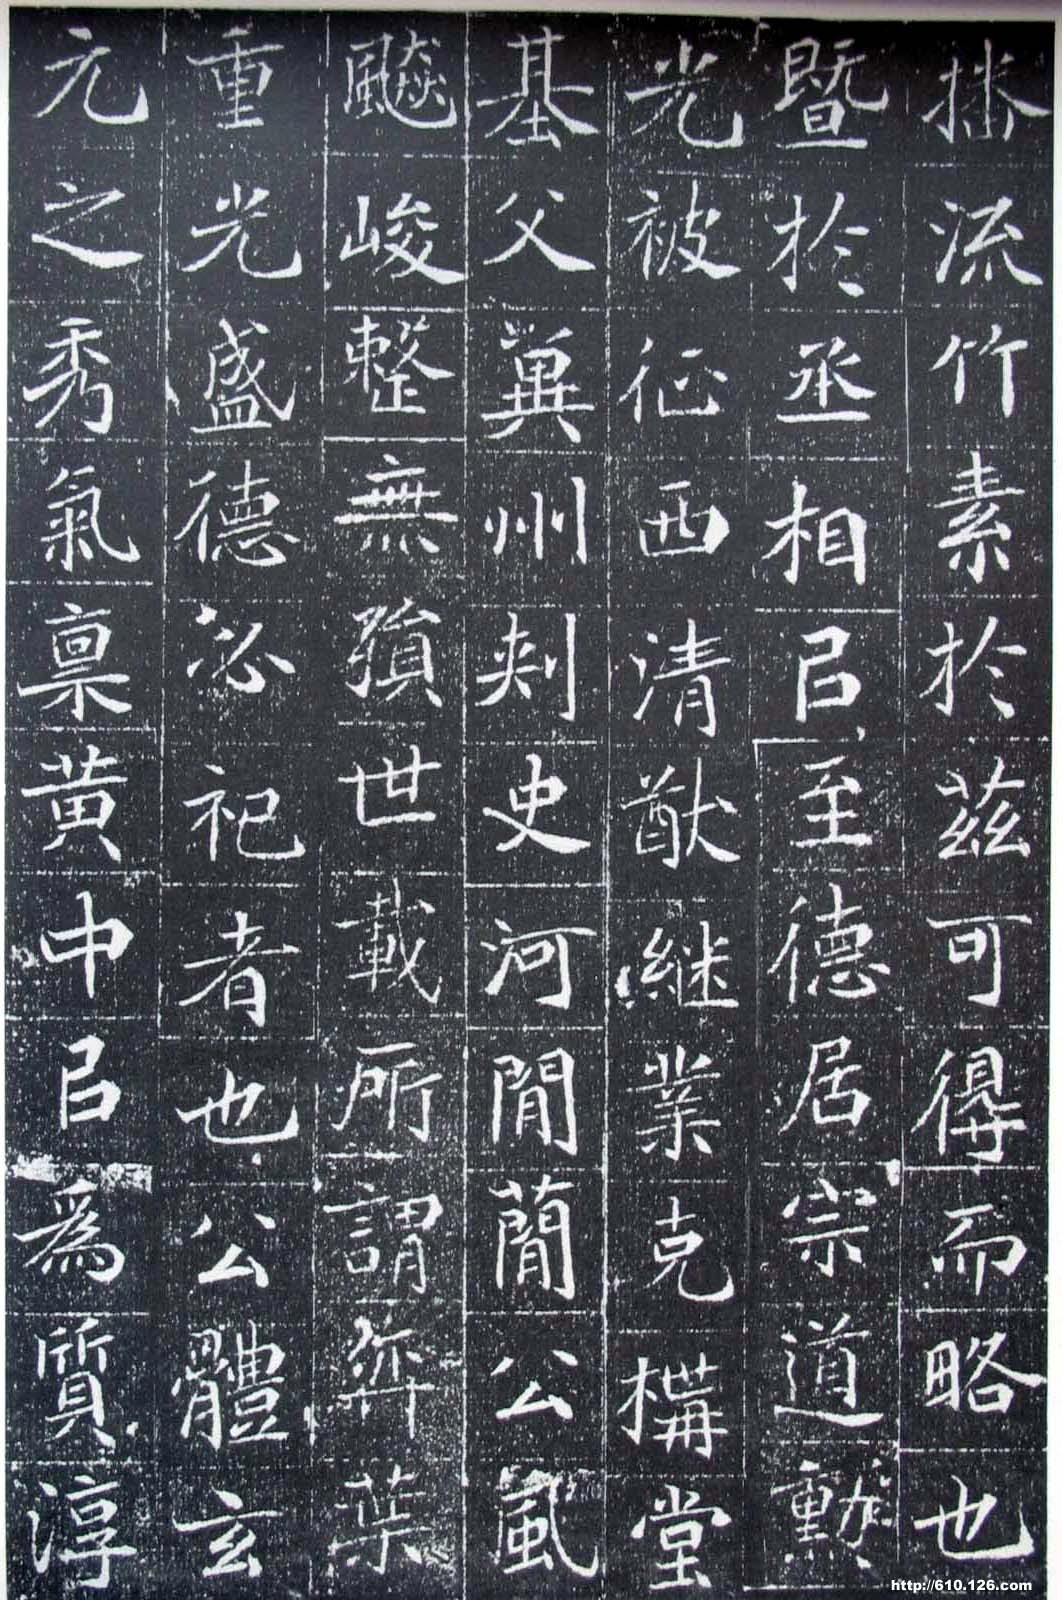 播流竹素於茲可得而略也
暨於丞相㠯至德居宗道勳
光被征西清猷継業克構堂
基父冀州刾史河間蕑公風
飈峻整無殞世載所謂弈葉
重光盛德必祀者也公體玄
元之秀氣稟黃中㠯爲質淳
http://610.126.com